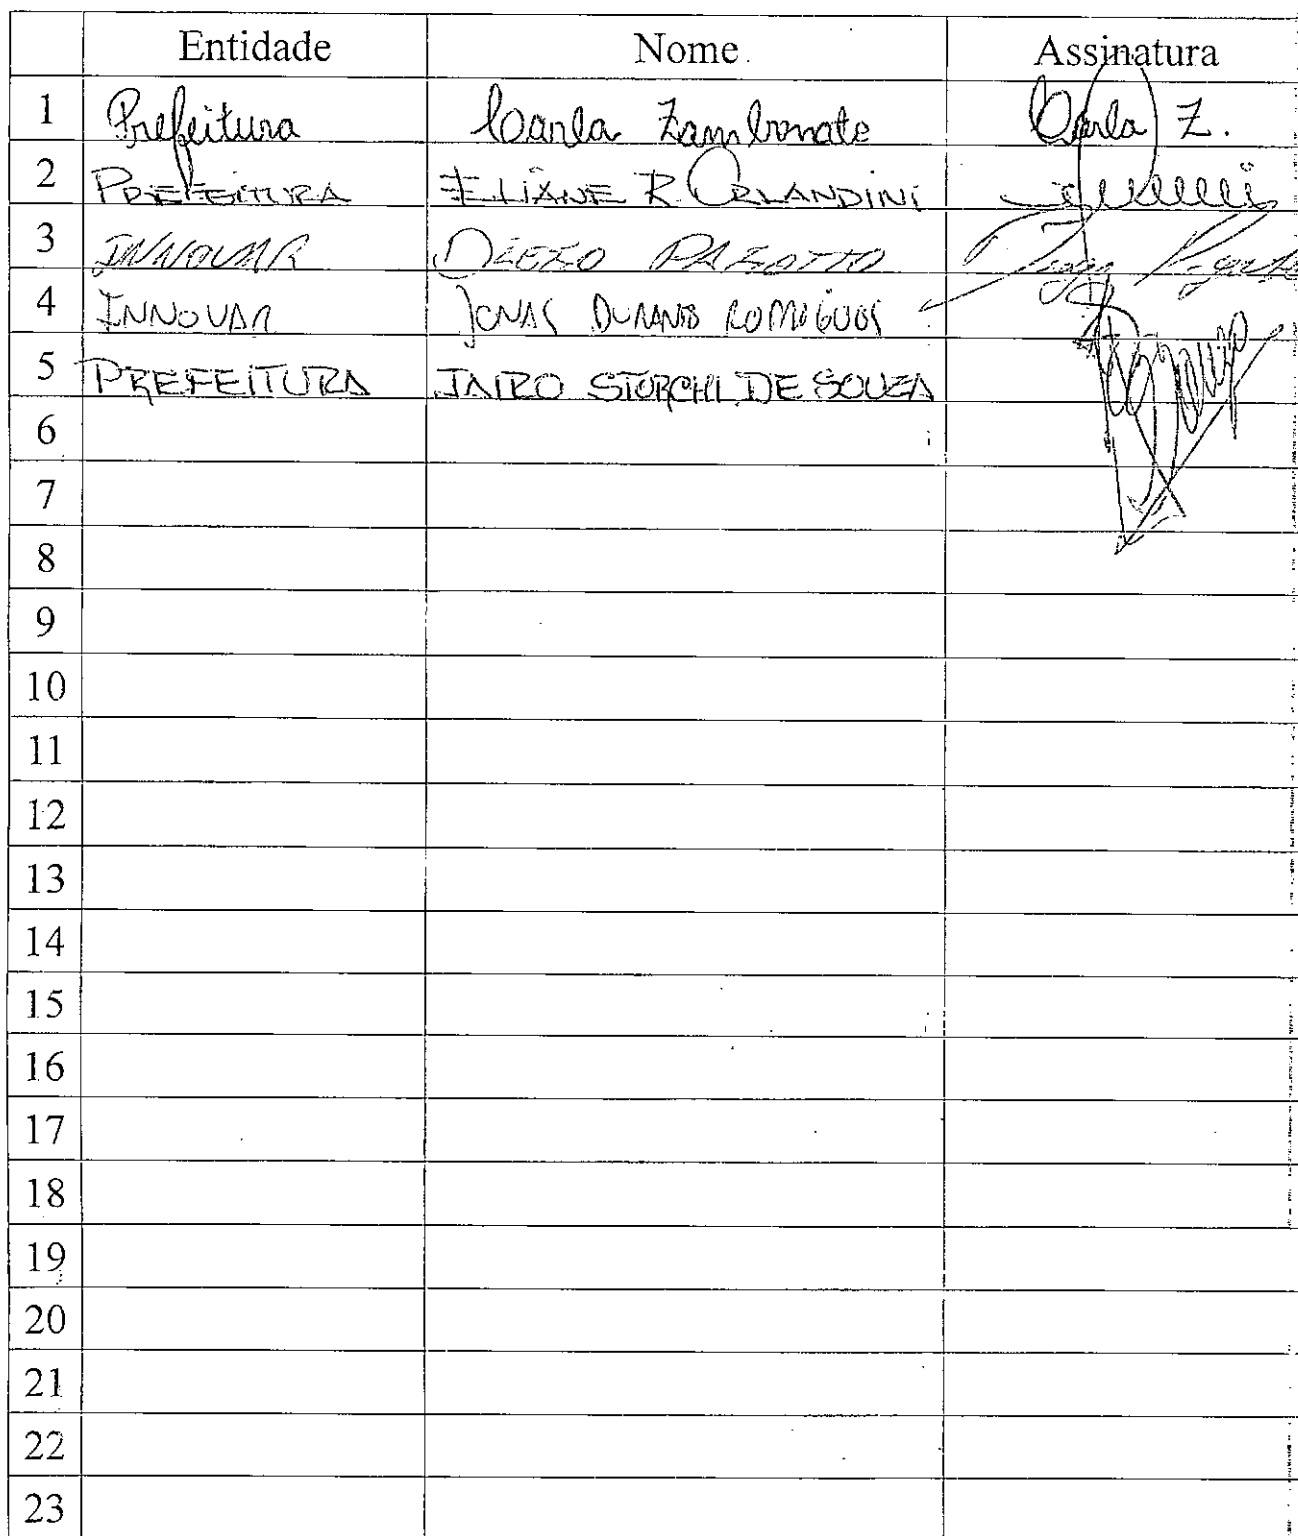 Entidade Nome Assinatura
1 Prefeitura Carla Zambonato Carla Z.
2 PREFEITURA ELIANE R. ORLANDINI
3 INNOVAR DIEGO PAGOTTO Diego Pagotto
4 INNOVAR JONAS DURANS RODRIGUES
5 PREFEITURA JAIRO STORCHI DE SOUZA
6
7
8
9
10
11
12
13
14
15
16
17
18
19
20
21
22
23